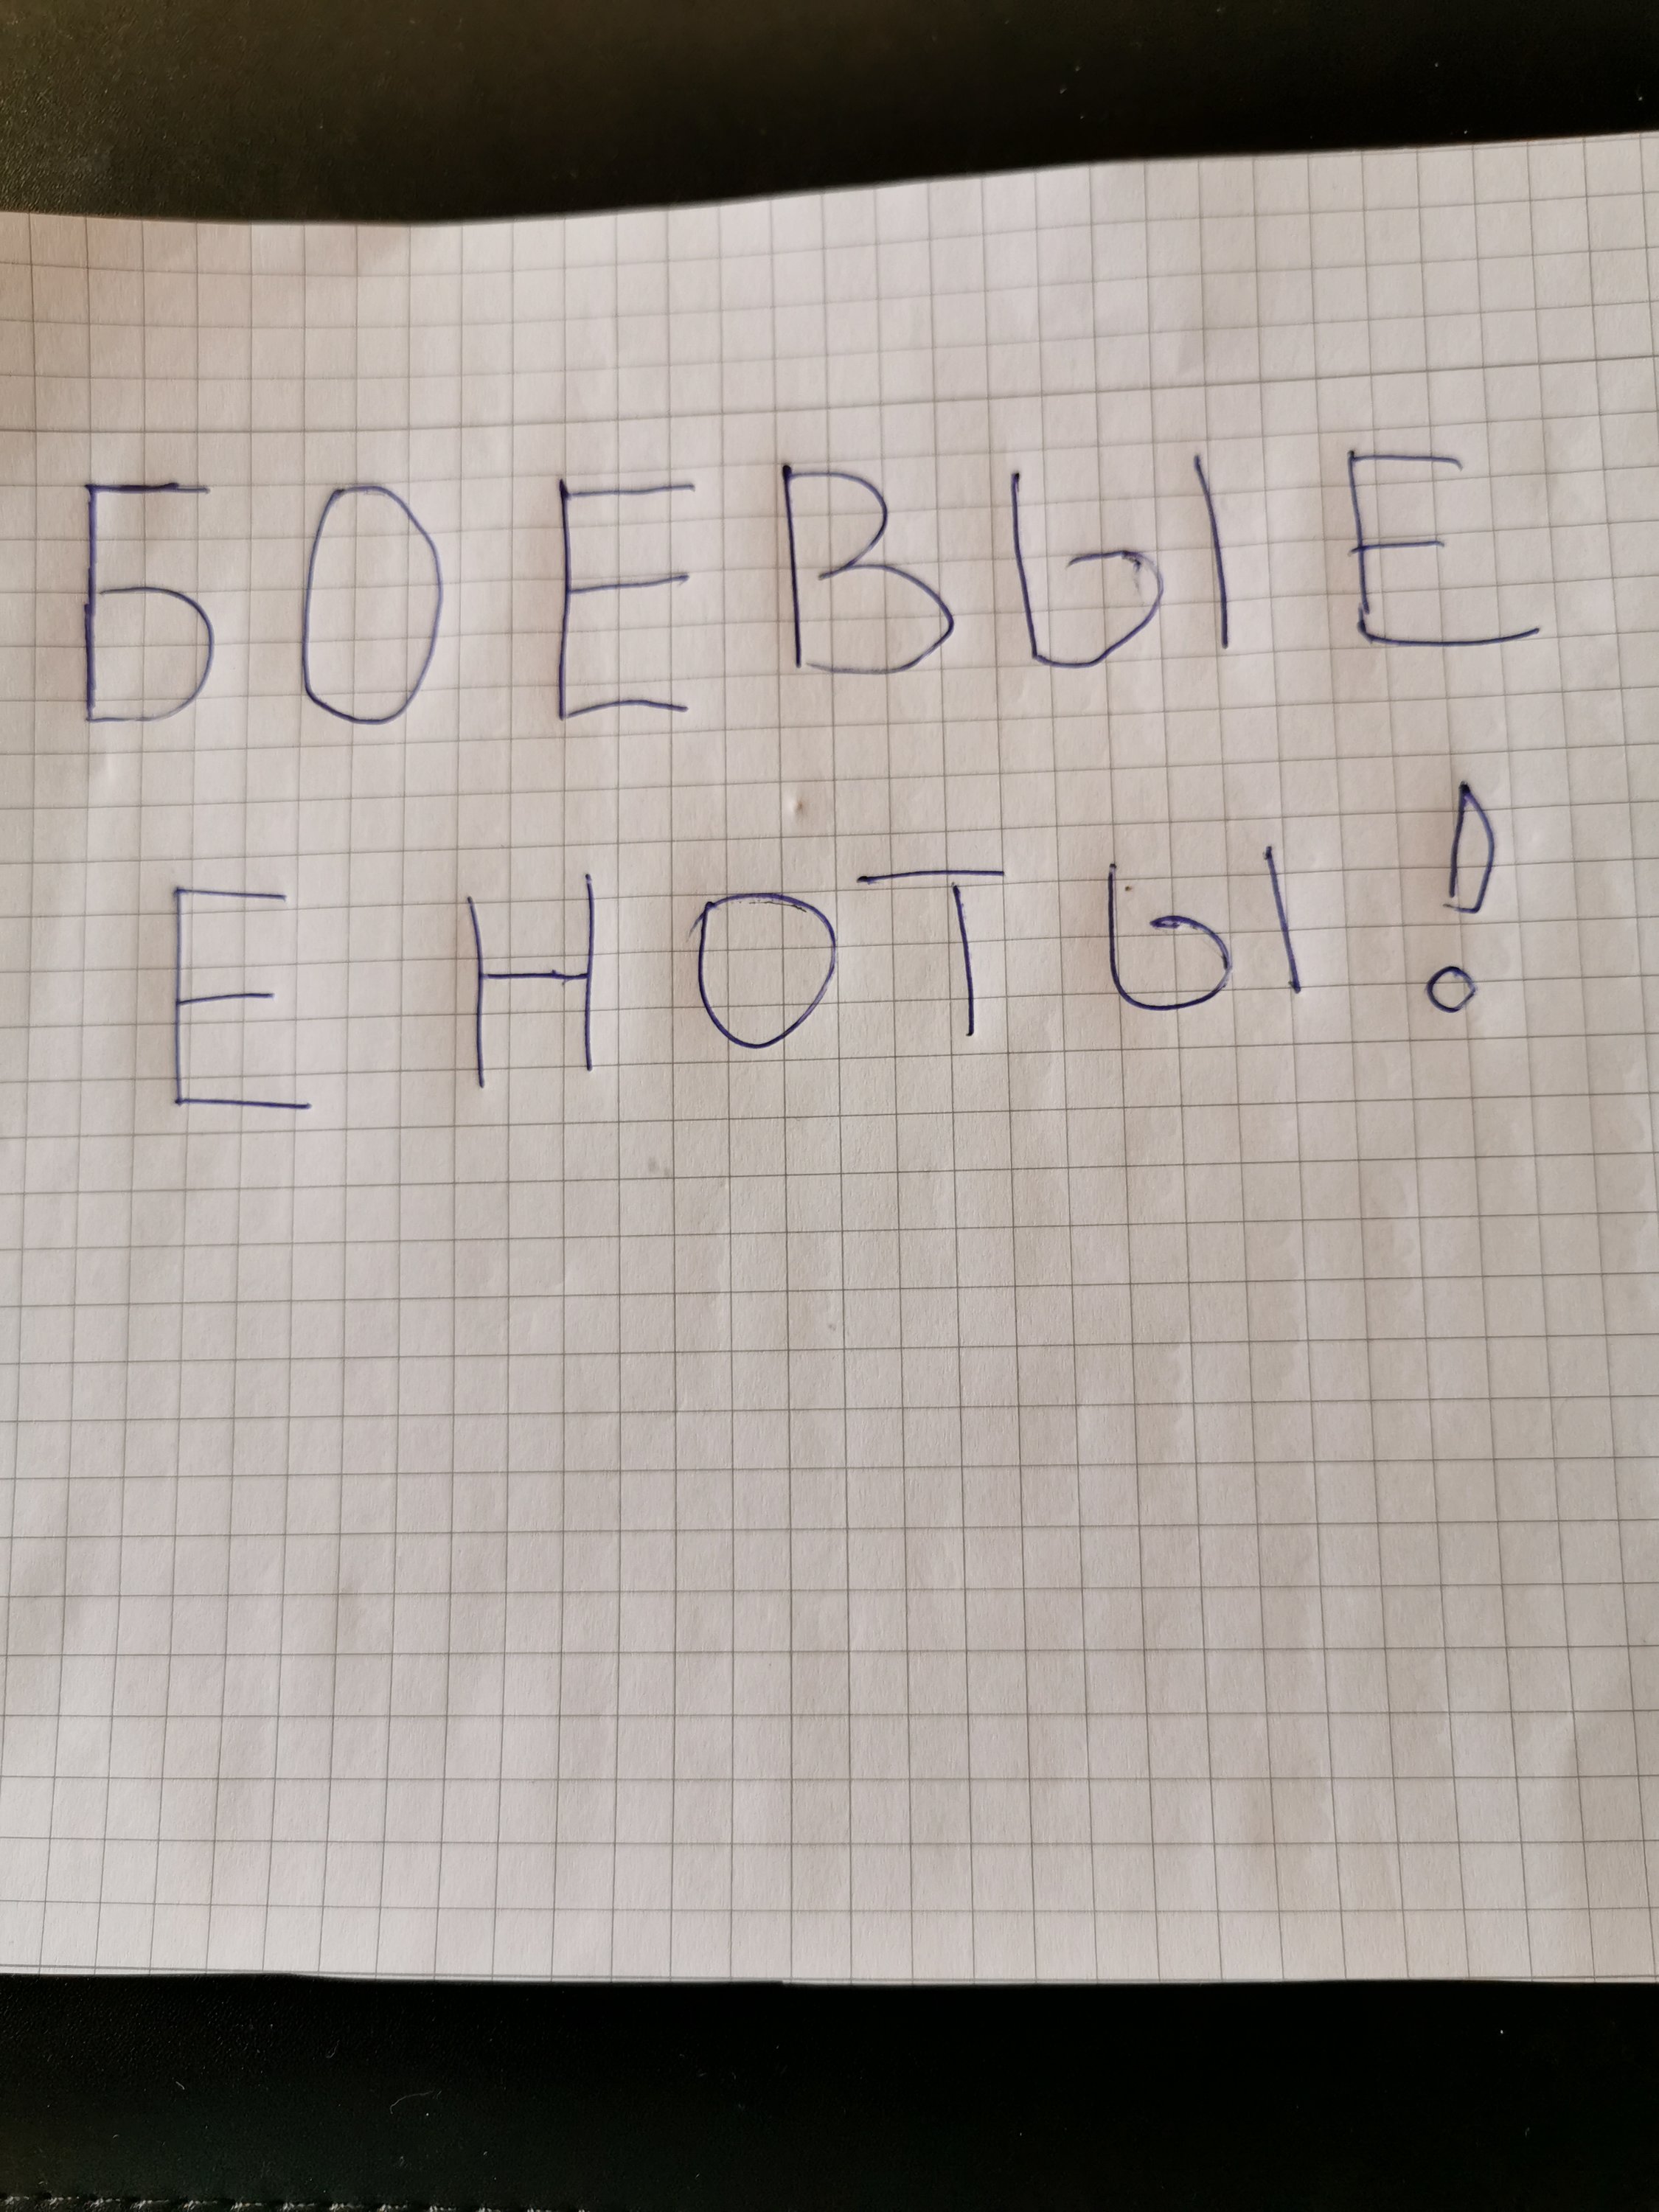 БОЕВЫЕ
ЕНОТЫ!